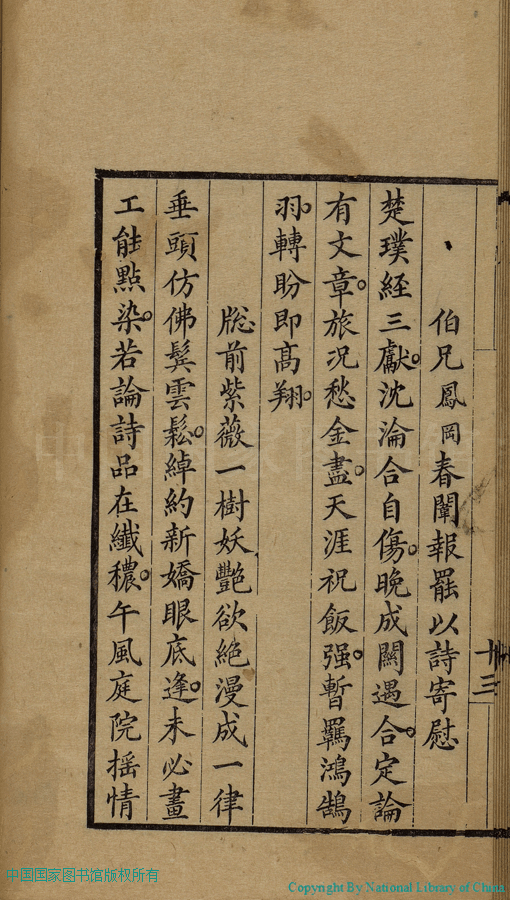 伯兄鳳岡春闈報罷以詩寄慰
楚璞經三獻沈淪合自傷晚成關遇合定論
有文章旅況愁金盡天涯祝飯强暫羈鴻鵠
羽轉盼即高翔
牕前紫薇一樹妖艷欲絕漫成一律
垂頭仿佛鬂雲鬆綽約新嬌眼底逢未必畫
工能點染若論詩品在纖穠午風庭院摇情
十三
中国国家图书馆版权所有
Copyright By National Library of China